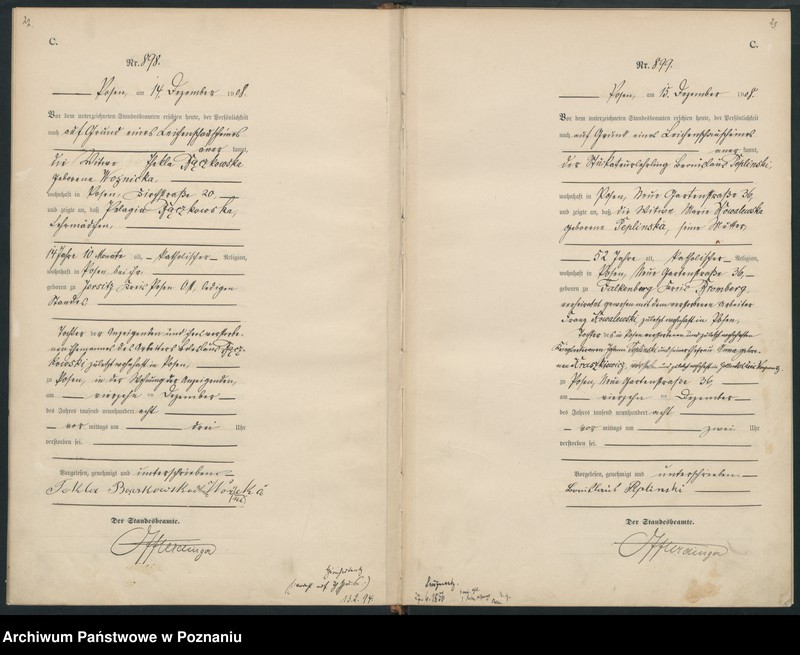 C.
Nr. 898.
Posen, am 14. Dezember 1908.
Vor dem unterzeichneten Standesbeamten erschien heute, der Persönlichkeit
nach auf Grund eines Leichenschauscheines
aner kannt,
die Witwe
geborene Woznicka,
wohnhaft in Posen, 20,
und zeigte an, daß Pelagia
Lehrmädchen,
14 Jahre 10 Monate alt, katholischer Religion,
wohnhaft in Posen bei ihr
geboren zu Kreis Posen Ost, ledigen
Standes
Tochter der Anzeigenden und ihres verstorbe-
nen Ehemannes des Arbeiters
zuletzt wohnhaft in Posen,
zu Posen, in der Wohnung der Anzeigenden,
am vierzehn ten Dezember
des Jahres tausend neunhundert acht
vor mittags um drei Uhr
verstorben sei.
Vorgelesen, genehmigt und unterschrieben
Tekla
Der Standesbeamte.
13.2.94.
C.
Nr. 899.
Posen, am 15. Dezember 1908.
Vor dem unterzeichneten Standesbeamten erschien heute, der Persönlichkeit
nach auf Grund eines Leichenschauscheines
aner kannt,
der Stukateurlehrling Bronislaus Peplinski,
wohnhaft in Posen, Neue Gartenstraße 36,
und zeigte an, daß die Witwe Marie Kowalewska
geborene Peplinska, seine Mutter,
52 Jahre alt, katholischer Religion,
wohnhaft in Posen, Neue Gartenstraße 36,
geboren zu Falkenberg Kreis Bromberg,
verheiratet gewesen mit dem verstorbenen Arbeiter
Franz Kowalewski, zuletzt wohnhaft in Posen,
Tochter des in Posen verstorbenen und zuletzt wohnhaften
Peplinski und seiner Ehefrau Anna gebore-
nen Kraszkiewicz,
zu Posen, Neue Gartenstraße 36,
am vierzehn ten Dezember
des Jahres tausend neunhundert acht
vor mittags um zwei Uhr
verstorben sei.
Vorgelesen, genehmigt und unterschrieben
Bronislaus Peplinski
Der Standesbeamte.
Archiwum Państwowe w Poznaniu